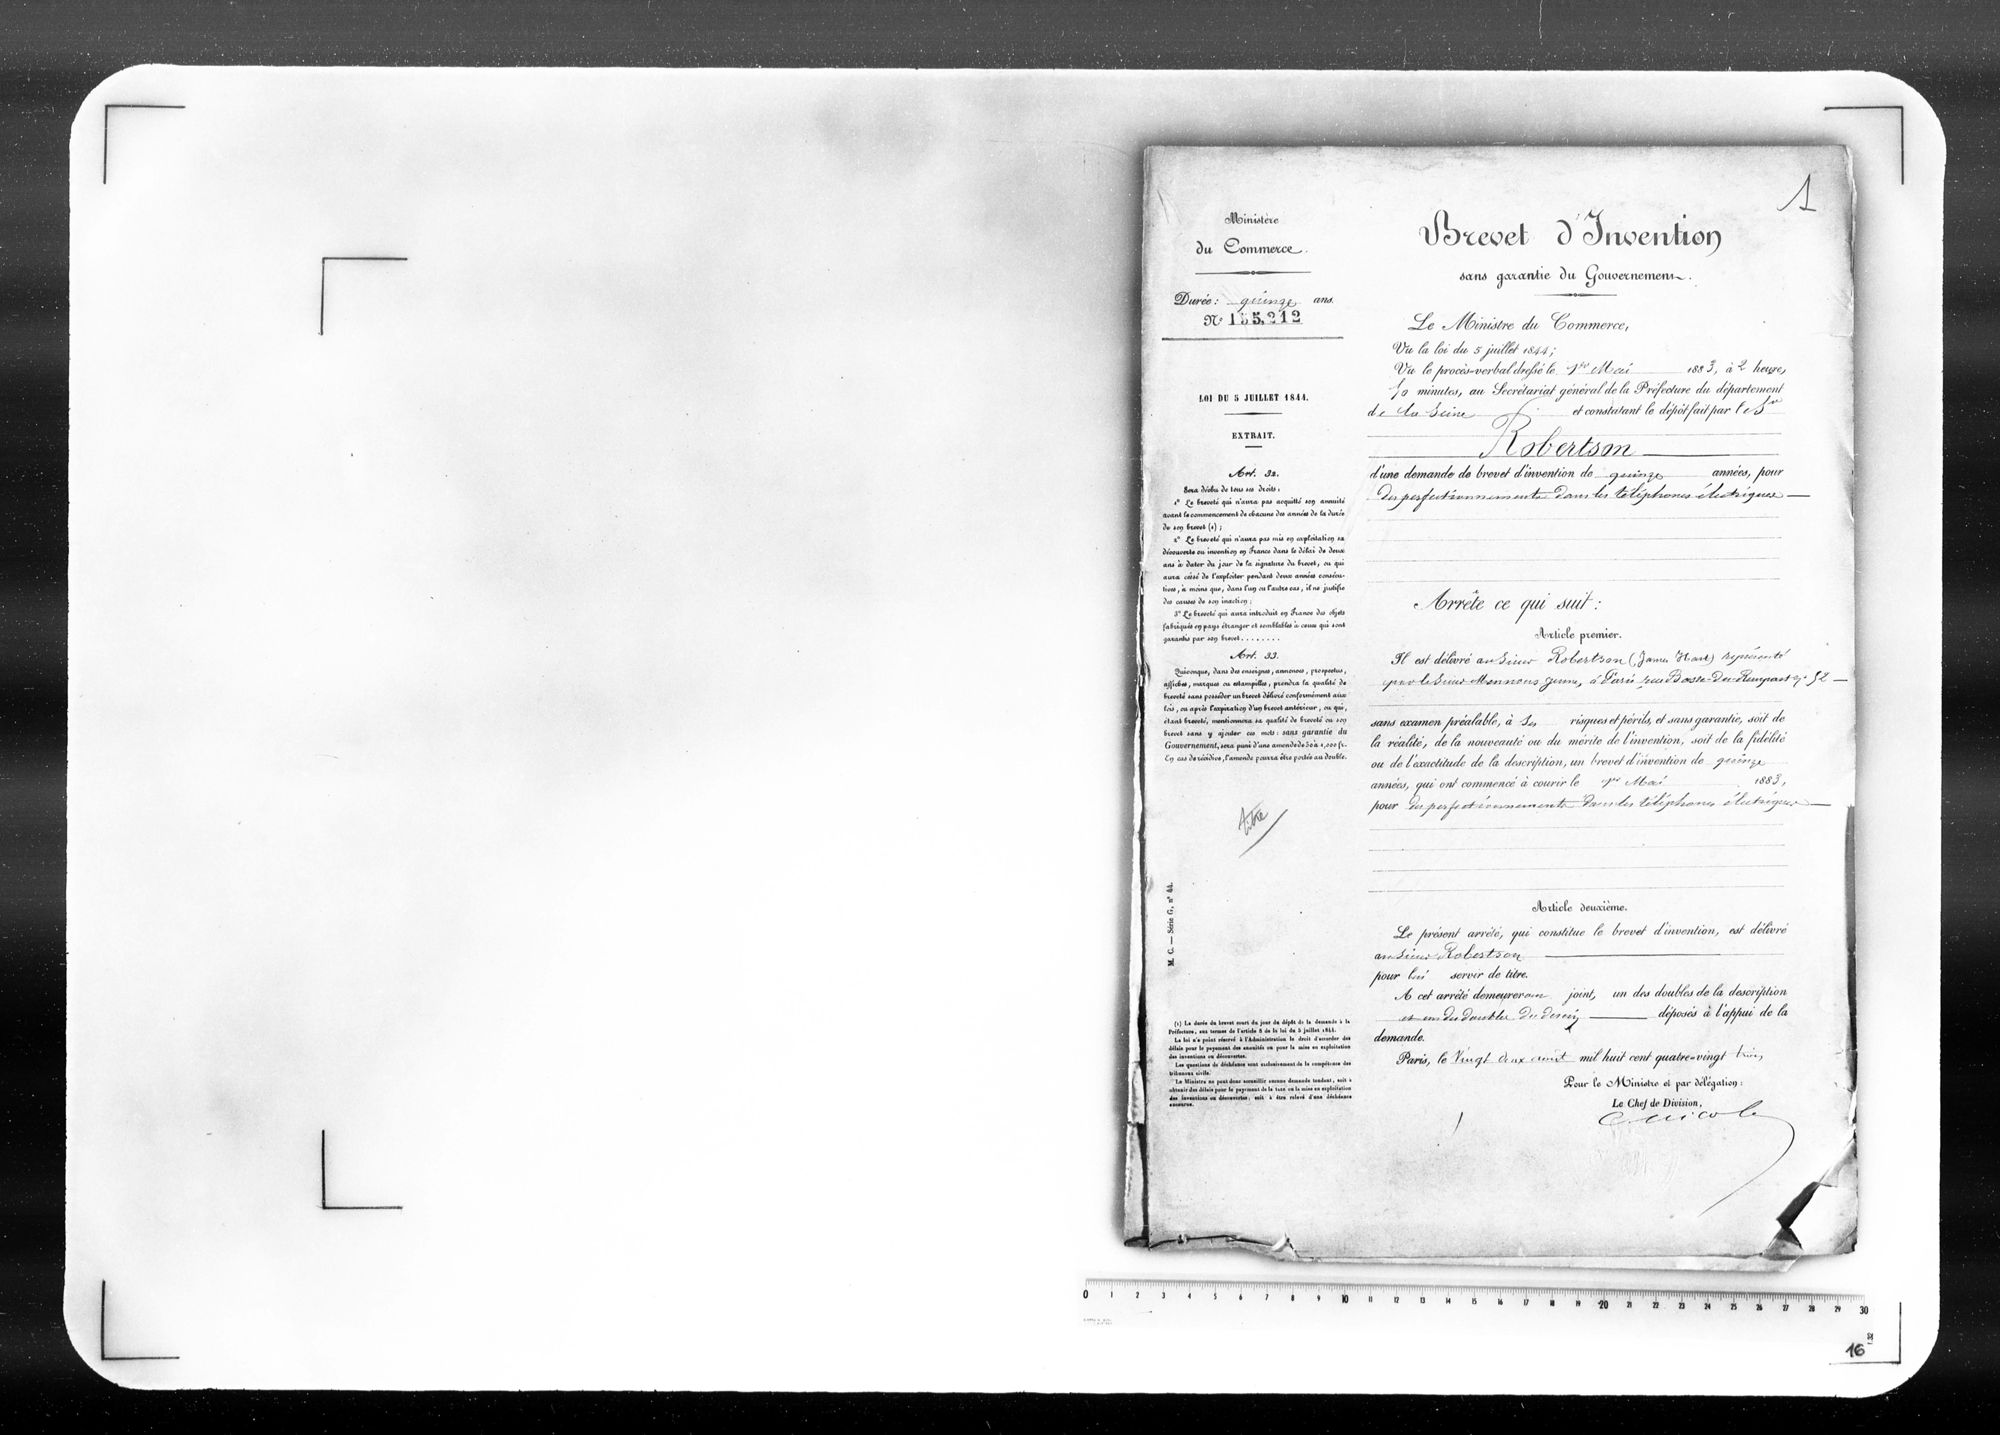 1
Ministère
du Commerce.
Durée: quinze ans.
N° 155,212
LOI DU 5 JUILLET 1844.
EXTRAIT.
Art. 32.
Sera déchu de tous ses droits:
1° Le breveté qui n'aura pas acquitté son annuité
avant le commencement de chacune des années de la durée
de son brevet (1);
2° Le breveté qui n'aura pas mis en exploitation sa
découverte ou invention en France dans le délai de deux
ans à dater du jour de la signature du brevet, ou qui
aura cessé de l'exploiter pendant deux années consécu-
tives, à moins que, dans l'un ou l'autre cas, il ne justifie
des causes de son inaction;
3° Le breveté qui aura introduit en France des objets
fabriqués en pays étranger et semblables à ceux qui sont
garantis par son brevet........
Art. 33.
Quiconque, dans des enseignes, annonces, prospectus,
affiches, marques ou estampilles, prendra la qualité de
breveté sans posséder un brevet délivré conformément aux
lois, ou après l'expiration d'un brevet antérieur, ou qui,
étant breveté, mentionnera sa qualité de breveté ou son
brevet sans y ajouter ces mots: sans garantie du
Gouvernement, sera puni d'une amende de 50 à 1,000 fr.
En cas de récidive, l'amende pourra être portée au double.
titre
M. C. — Série G, n° 44.
(1) La durée du brevet court du jour du dépôt de la demande à la
Préfecture, aux termes de l'article 8 de la loi du 5 juillet 1844.
La loi n'a point réservé à l'Administration le droit d'accorder des
délais pour le payement des annuités ou pour la mise en exploitation
des inventions ou découvertes.
Les questions de déchéance sont exclusivement de la compétence des
tribunaux civils.
Le Ministre ne peut donc accueillir aucune demande tendant, soit à
obtenir des délais pour le payement de la taxe ou la mise en exploitation
des inventions ou découvertes, soit à être relevé d'une déchéance
encourue.
Brevet d'Invention
sans garantie du Gouvernement.
Le Ministre du Commerce,
Vu la loi du 5 juillet 1844;
Vu le procès-verbal dressé le 1er Mai 1883, à 2 heures,
minutes, au Secrétariat général de la Préfecture du département
de la Seine et constatant le dépôt fait par le Sr
Robertson
d'une demande de brevet d'invention de quinze années, pour
des perfectionnements dans les téléphones électriques
Arrête ce qui suit:
Article premier.
Il est délivré au Sieur Robertson (James Hart) représenté
par le Sieur Mennons jeune, à Paris rue Basse-du-Rempart n° 52
sans examen préalable, à ses risques et périls, et sans garantie, soit de
la réalité, de la nouveauté ou du mérite de l'invention, soit de la fidélité
ou de l'exactitude de la description, un brevet d'invention de quinze
années, qui ont commencé à courir le 1er Mai 1883,
pour des perfectionnements dans les téléphones électriques
Article deuxième.
Le présent arrêté, qui constitue le brevet d'invention, est délivré
au Sieur Robertson
pour lui servir de titre.
A cet arrêté demeureront joints, un des doubles de la description
et un des doubles du dessin déposés à l'appui de la
demande.
Paris, le vingt deux août mil huit cent quatre-vingt trois
Pour le Ministre et par délégation:
Le Chef de Division,
0 1 2 3 4 5 6 7 8 9 10 11 12 13 14 15 16 17 18 19 20 21 22 23 24 25 26 27 28 29 30
16